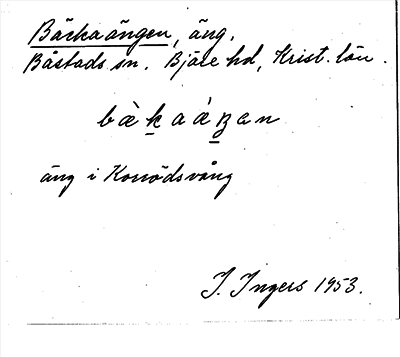 Bäckaängen, äng.
Båstads sn. Bjäre hd, Krist. län.
äng i Korrödsvång
I. Ingers 1953.